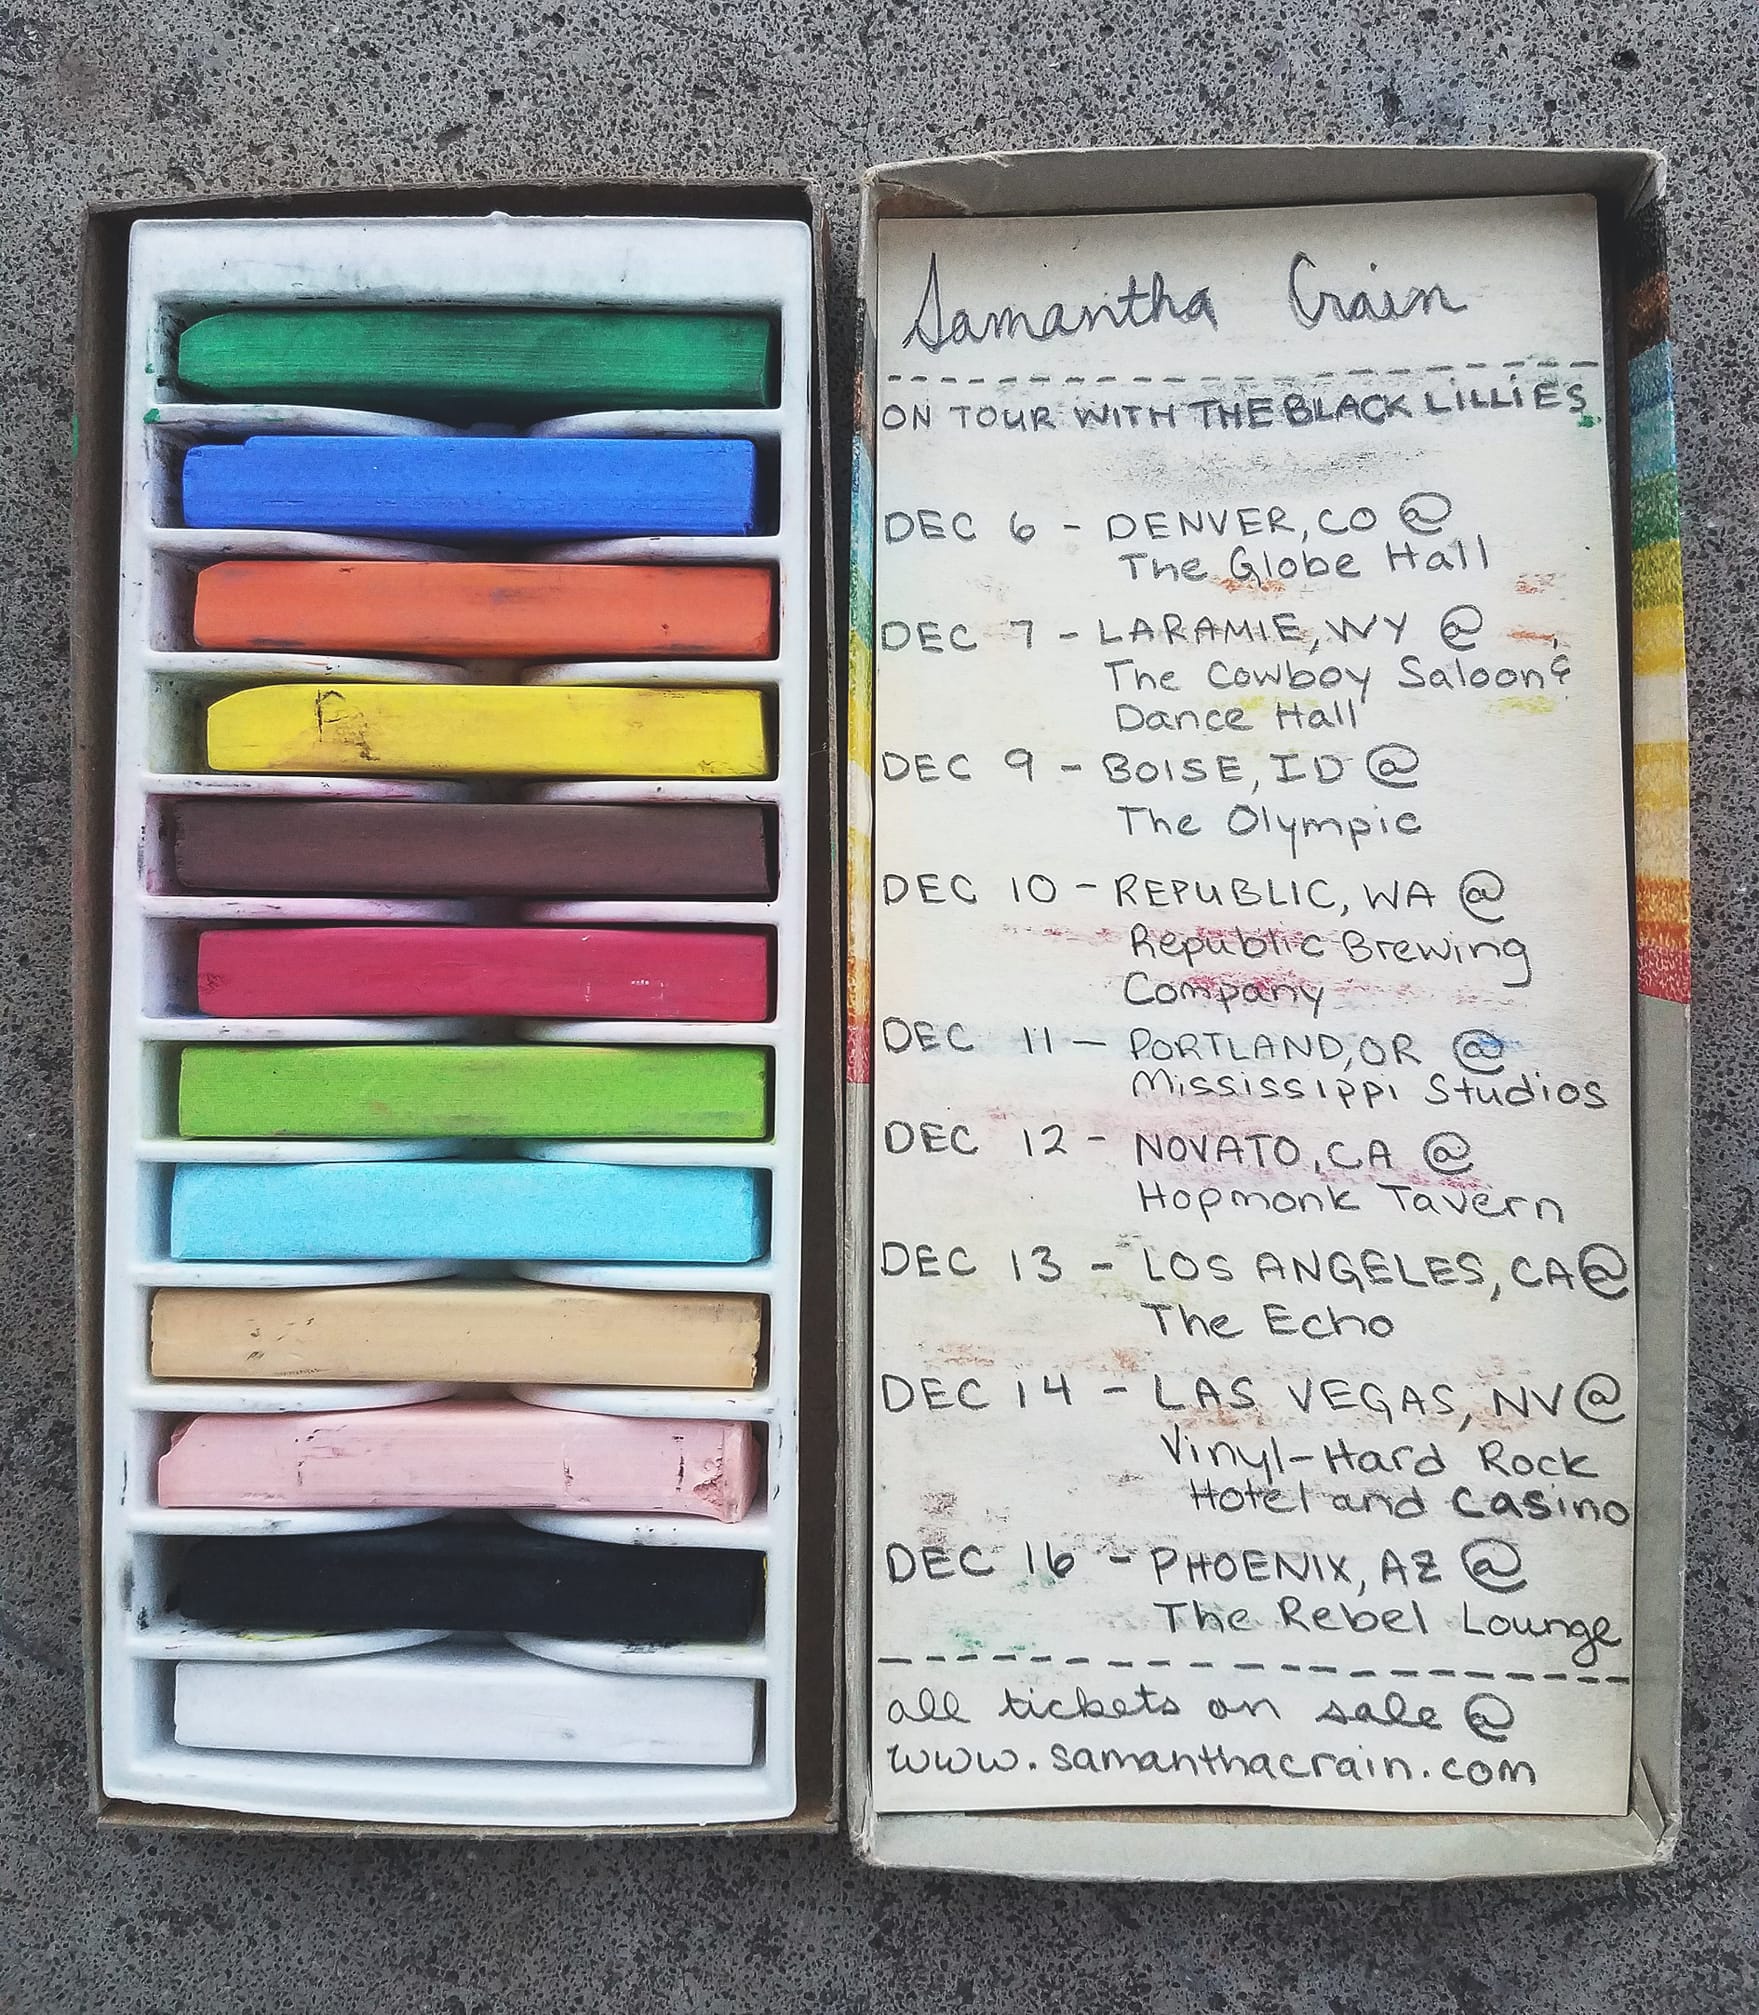 Samantha Crain
ON TOUR WITH THE BLACK LILLIES
DEC 6 - DENVER, CO @
The Globe Hall
DEC 7 - LARAMIE, WY @
The Cowboy Saloon &
Dance Hall
DEC 9 - BOISE, ID @
The Olympic
DEC 10 - REPUBLIC, WA @
Republic Brewing
Company
DEC 11 - PORTLAND, OR @
Mississippi Studios
DEC 12 - NOVATO, CA @
Hopmonk Tavern
DEC 13 - LOS ANGELES, CA @
The Echo
DEC 14 - LAS VEGAS, NV @
Vinyl-Hard Rock
Hotel and Casino
DEC 16 - PHOENIX, AZ @
The Rebel Lounge
all tickets on sale @
www.samanthacrain.com